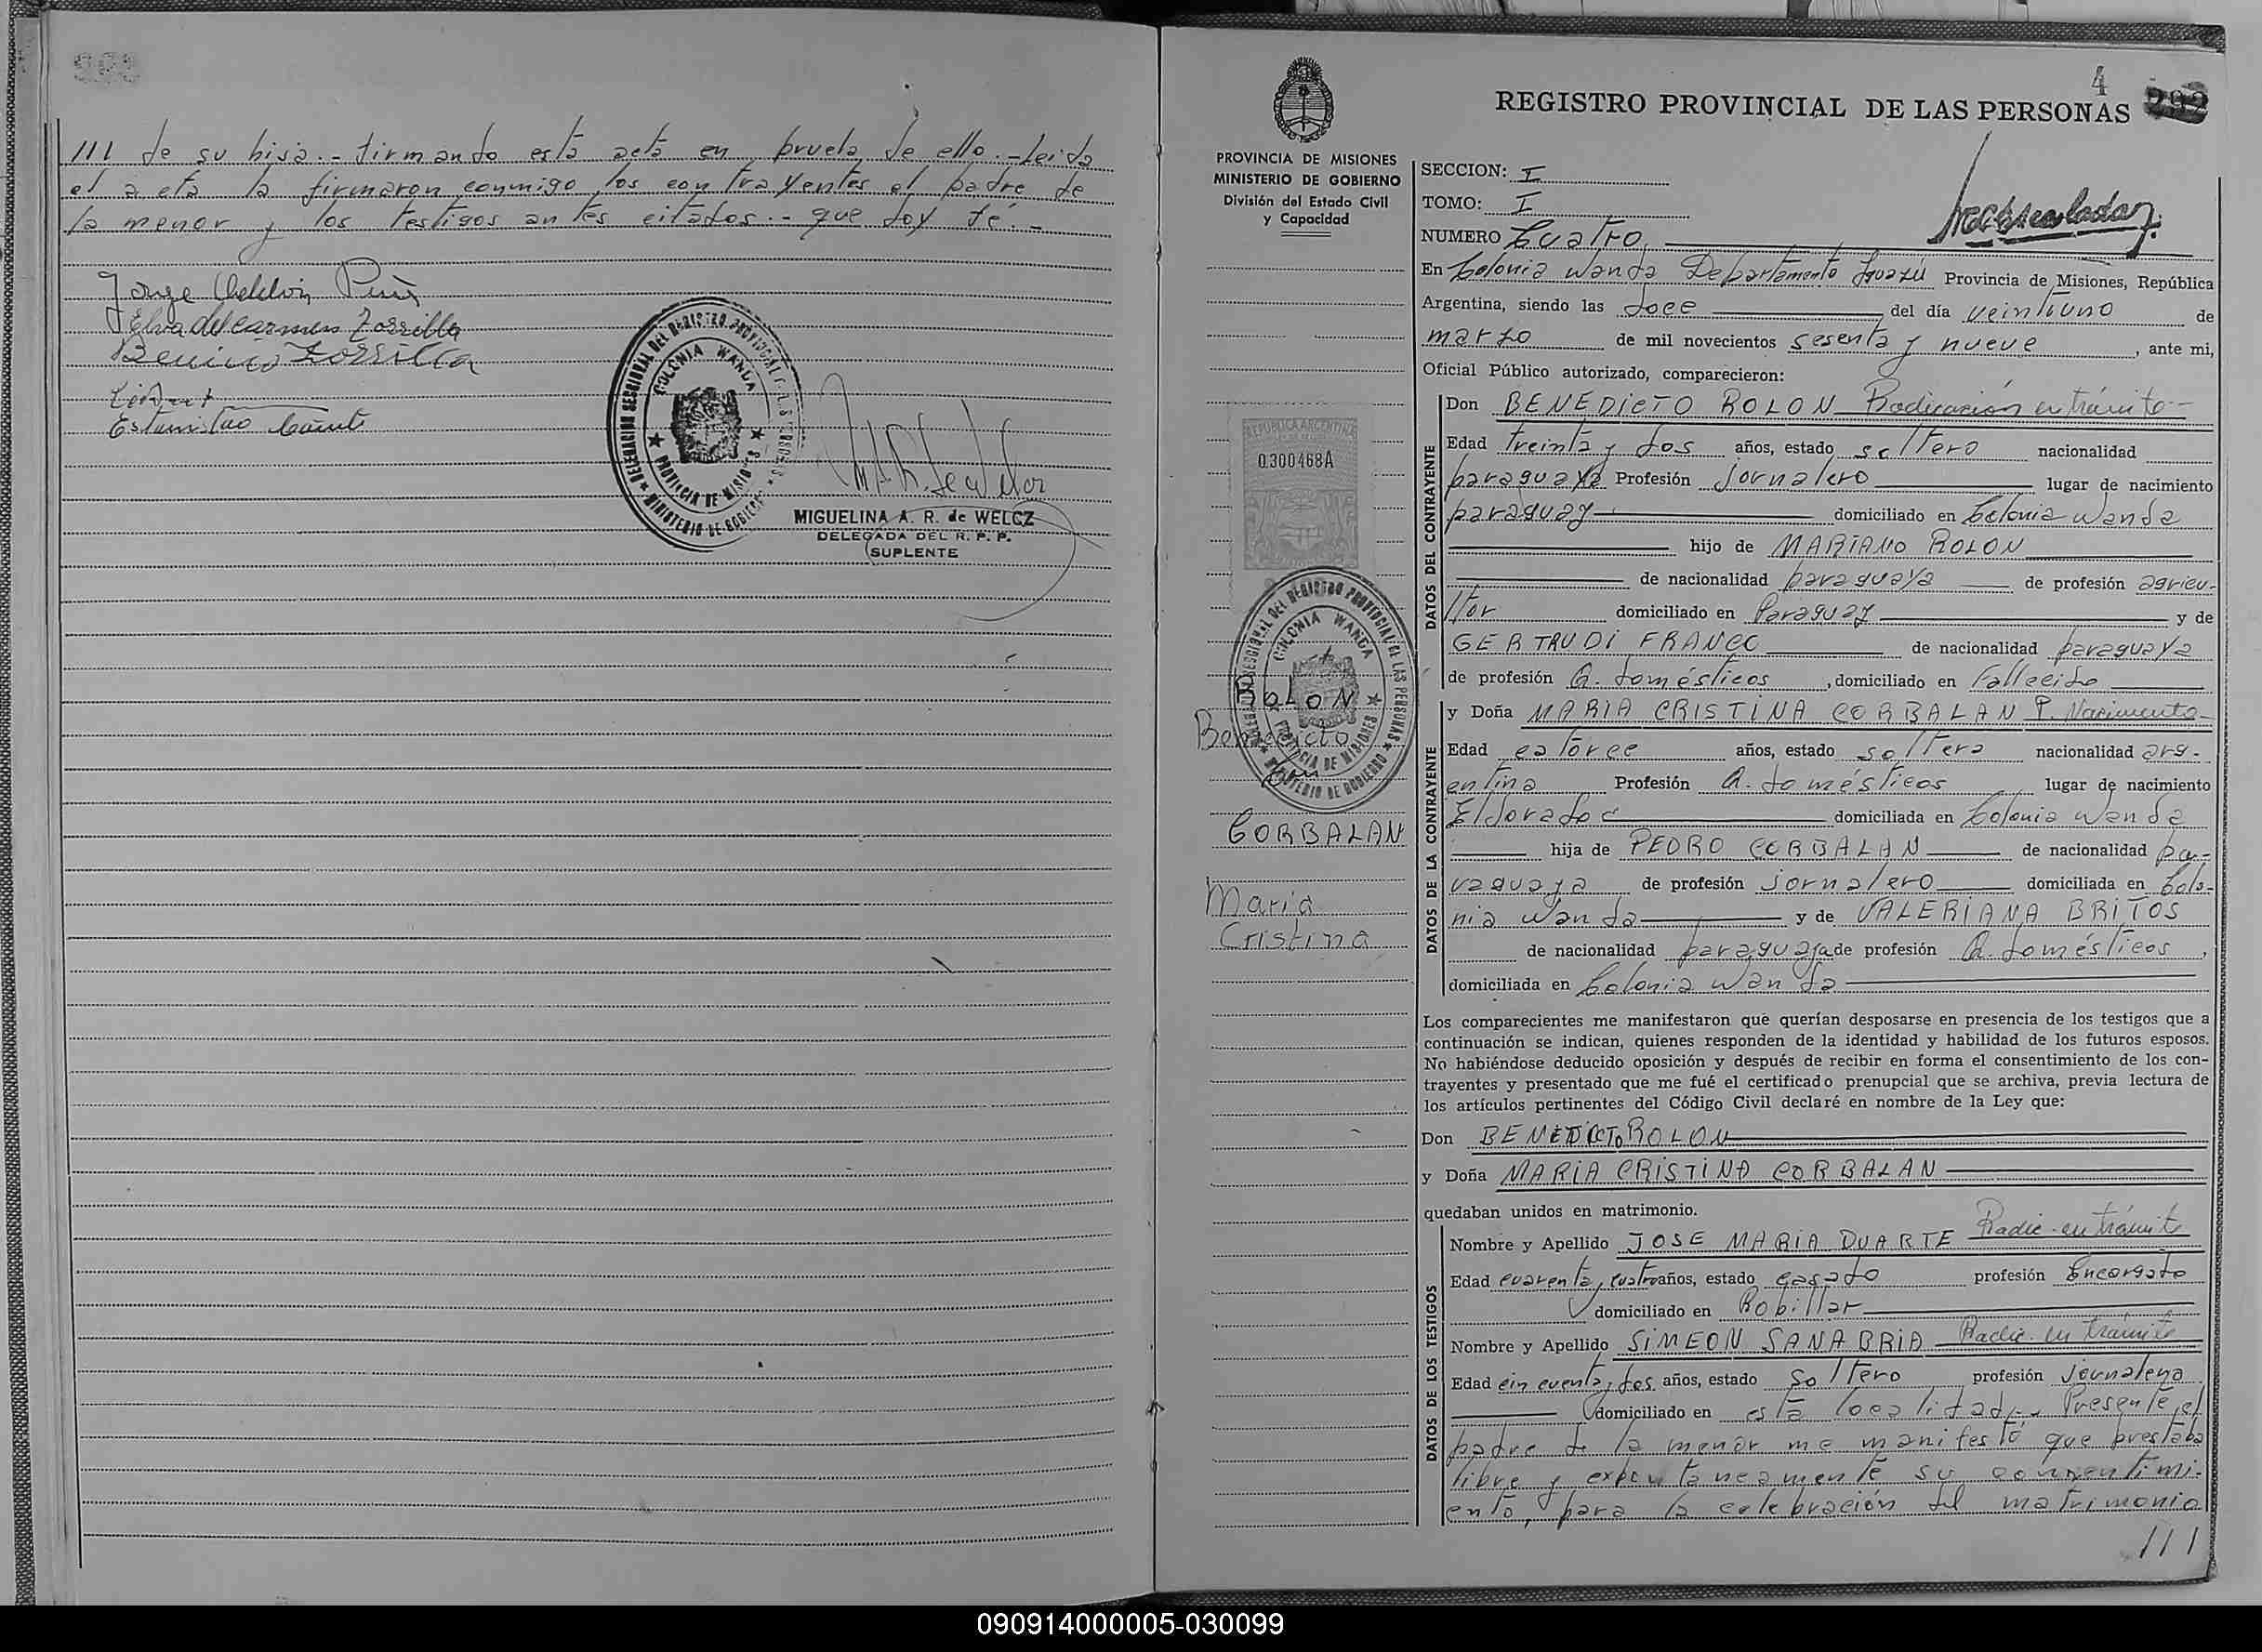 /// de su hija.- firmando esta acta en prueba de ello.- Leida
el acta la firmaron conmigo los contrayentes el padre de
la menor y los testigos antes citados.- que doy fé.-
Jorge
Elva del carmen Zorrilla
Zorrilla
Estanislao
DELEGACION SECCIONAL DEL REGISTRO PROVINCIAL DE LAS PERSONAS
COLONIA WANDA
PROVINCIA DE MISIONES
MINISTERIO DE GOBIERNO
MIGUELINA A. R. de WELCZ
DELEGADA DEL R. P. P.
SUPLENTE
4
292
REGISTRO PROVINCIAL DE LAS PERSONAS
PROVINCIA DE MISIONES
MINISTERIO DE GOBIERNO
División del Estado Civil
y Capacidad
REPUBLICA ARGENTINA
0.300468A
DELEGACION SECCIONAL DEL REGISTRO PROVINCIAL DE LAS PERSONAS
COLONIA WANDA
PROVINCIA DE MISIONES
MINISTERIO DE GOBIERNO
ROLON
Benedicto
CORBALAN
Maria
Cristina
SECCION: I
TOMO: I
NUMERO Cuatro
En Colonia Wanda Departamento Iguazú Provincia de Misiones, República
Argentina, siendo las doce del día veintiuno de
marzo de mil novecientos sesenta y nueve, ante mi,
Oficial Público autorizado, comparecieron:
DATOS DEL CONTRAYENTE
Don BENEDICTO ROLON Radicación en trámite-
Edad treinta y dos años, estado soltero nacionalidad
paraguaya Profesión jornalero lugar de nacimiento
paraguay domiciliado en Colonia Wanda
hijo de MARIANO ROLON
de nacionalidad paraguaya de profesión agricu-
ltor domiciliado en Paraguay y de
GERTRUDI FRANCO de nacionalidad paraguaya
de profesión Q. domésticos, domiciliado en Fallecida
DATOS DE LA CONTRAYENTE
y Doña MARIA CRISTINA CORBALAN P. Nacimiento-
Edad catorce años, estado soltera nacionalidad arg-
entina Profesión Q. domésticos lugar de nacimiento
Eldorado domiciliada en Colonia Wanda
hija de PEDRO CORBALAN de nacionalidad pa-
raguaya de profesión jornalero domiciliada en Colo-
nia Wanda y de VALERIANA BRITOS
de nacionalidad paraguaya de profesión Q. domésticos,
domiciliada en Colonia Wanda
Los comparecientes me manifestaron que querían desposarse en presencia de los testigos que a
continuación se indican, quienes responden de la identidad y habilidad de los futuros esposos.
No habiéndose deducido oposición y después de recibir en forma el consentimiento de los con-
trayentes y presentado que me fué el certificado prenupcial que se archiva, previa lectura de
los artículos pertinentes del Código Civil declaré en nombre de la Ley que:
Don BENEDICTO ROLON
y Doña MARIA CRISTINA CORBALAN
quedaban unidos en matrimonio.
DATOS DE LOS TESTIGOS
Nombre y Apellido JOSE MARIA DUARTE Radic. en trámite
Edad cuarenta y cuatro años, estado casado profesión Encargado
domiciliado en Robillar
Nombre y Apellido SIMEON SANABRIA Radic. en trámite
Edad cincuenta y dos años, estado soltero profesión jornalero
domiciliado en esta localidad.- Presente el
padre de la menor me manifestó que prestaba
libre y expontaneamente su consentimi-
ento, para la celebración del matrimonio
///
090914000005-030099